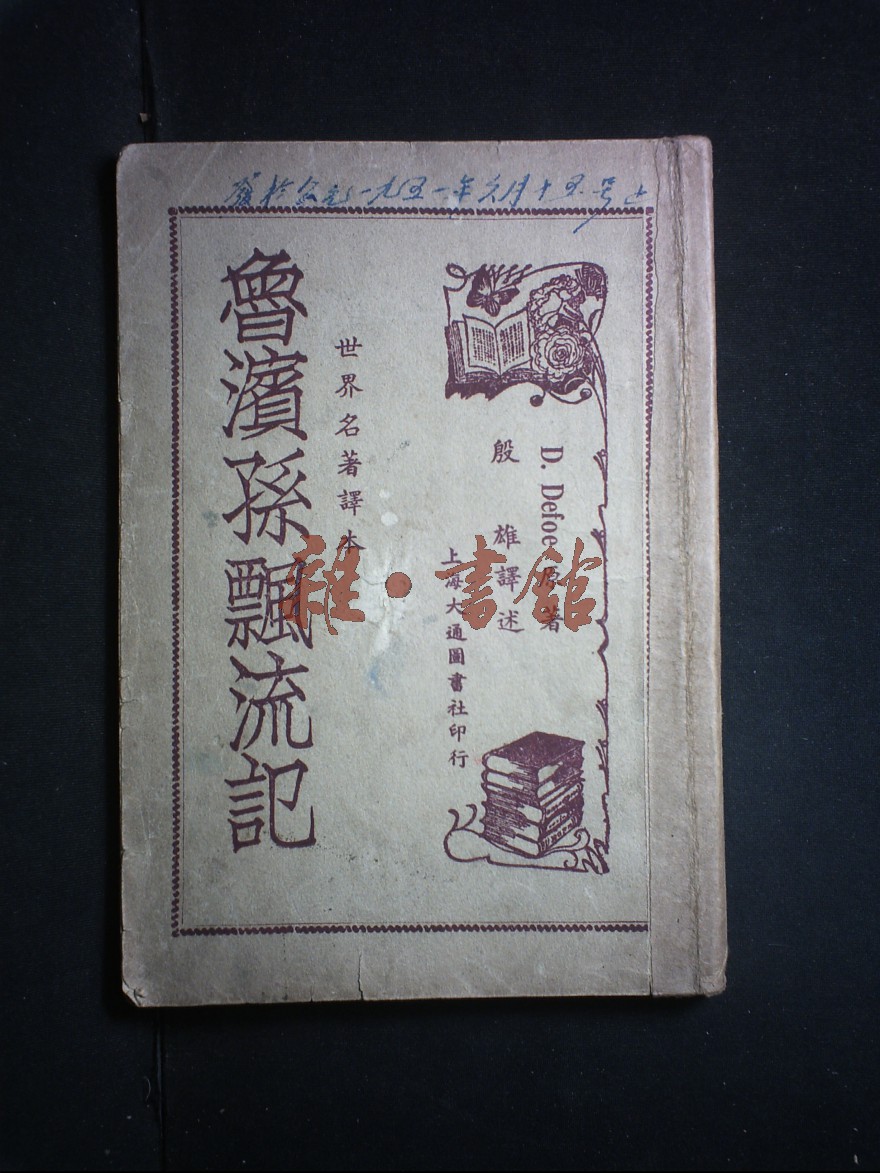 公元一九五一年六月十五号
D. Defoe 原著
殷雄譯述
上海大通圖書社印行
世界名著譯本
魯濱孫飄流記
雜·書館